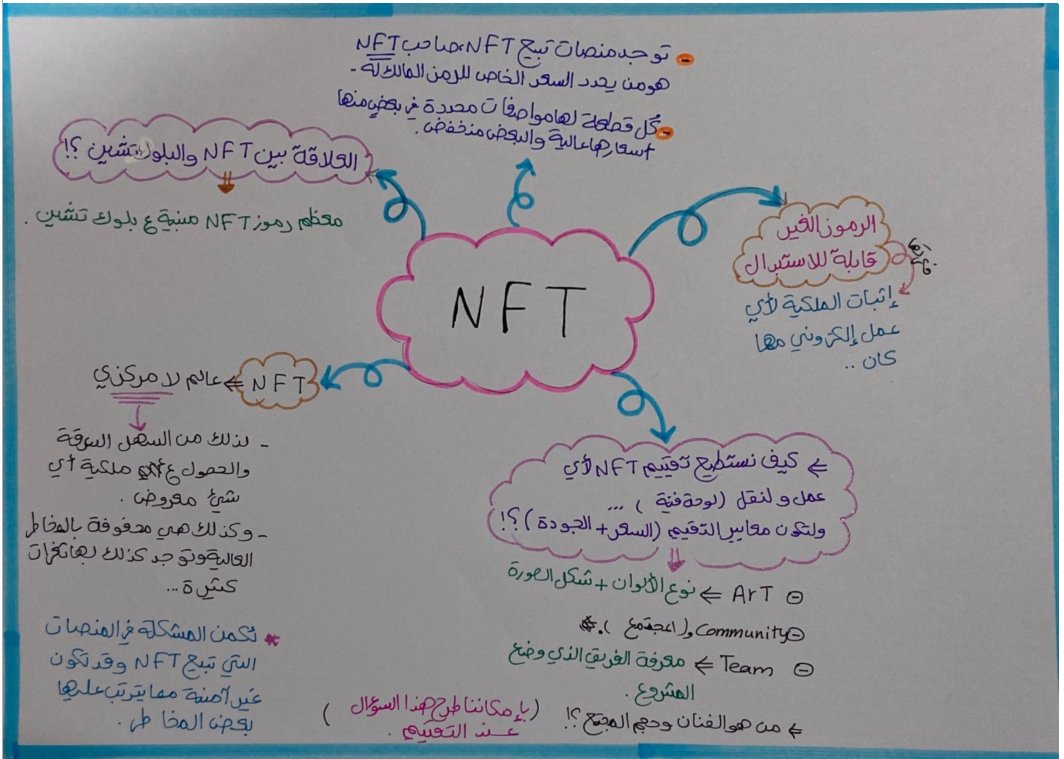 - توجد منصات تبيع NFT، صاحب NFT
هو من يحدد السعر الخاص للرمز المالك له -
- كل قطعة لها مواصفات محددة في بعض منها
أسعارها عالية والبعض منخفض .
العلاقة بين NFT والبلوك تشين ؟!
معظم رموز NFT مبنية ع بلوك تشين .
NFT
الرموز الغير
قابلة للاستبدال
إثبات الملكية لأي
عمل إلكتروني مها
كان ..
NFT ⇐ عالم لا مركزي
- لذلك من السهل السرقة
والحصول ع ملكية أي
شيئ معروض .
- وكذلك هي محفوفة بالمخاطر
العالية وتوجد كذلك لها ثغرات
كثيرة ...
* تكمن المشكلة في المنصات
التي تبيع NFT وقد تكون
غير آمنة مما يترتب عليها
بعض المخاطر .
⇐ كيف نستطيع تقييم NFT لأي
عمل ولنقل (لوحة فنية) ...
ولتكون معايير التقييم (السعر + الجودة) ؟!
⊖ ArT ⇐ نوع الألوان + شكل الصورة
⊖ Community و(المجتمع).
⊖ Team ⇐ معرفة الفريق الذي وضع
المشروع .
⇐ من هو الفنان وحجم المجتمع ؟!
(بإمكاننا طرح هذا السؤال
عند التقييم . )